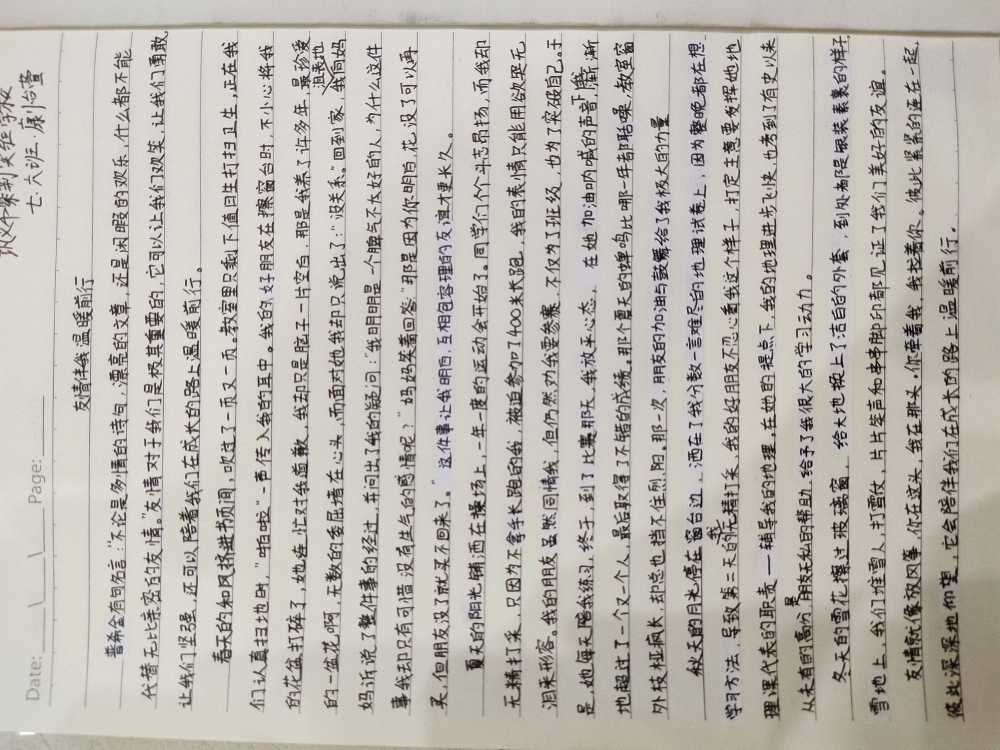 Date: Page:
七.六班
友情伴我温暖前行
普希金有句名言:“不论是多情的诗句,漂亮的文章,还是闲暇的欢乐,什么都不能
代替无比亲密的友情。”友情对于我们是极其重要的,它可以让我们欢笑,让我们勇敢,
让我们坚强,还可以陪着我们在成长的路上温暖前行。
春天的和风挤进书页间,吹过了一页又一页。教室里只剩下值日生打扫卫生,正在我
们认真扫地时,“啪啦”一声传入我的耳中。我的好朋友在擦窗台时,不小心将我
的花盆打碎了,她连忙对我道歉,我却只是脑子一片空白,那是我养了许多年,最珍爱
的一盆花啊,无数的委屈堵在心头,而面对她我却只说出了:“没关系。”回到家,我沮丧地向妈
妈诉说了整件事的经过,并问出了我的疑问:“我明明是一个脾气不太好的人,为什么这件
事我却只有可惜没有生气的感情呢?”妈妈笑着回答“那是因为你明白,花没了可以再
买,但朋友没了就买不回来了。”这件事让我明白,互相包容理的友谊才更长久。
夏天的阳光铺洒在操场上,一年一度的运动会开始了。同学们个个斗志昂扬,而我却
无精打采,只因为不拿手长跑的我,被迫参加了1400米长跑,我的表情只能用欲哭无
泪来形容。我的朋友虽然同情我,但仍然劝我要参赛,不仅为了班级,也为了突破自己。于
是,她每天陪我练习,终于,到了比赛那天,我放平心态,在她加油呐喊的声音下,我渐渐
地超过了一个又一个人,最后取得了不错的成绩。那个夏天的蝉鸣比哪一年都聒噪,教室窗
外枝桠疯长,却怎也挡不住烈阳。那一次,朋友的加油与鼓舞给了我极大的力量
秋天的月光停在窗台边,洒在了我分数一言难尽的地理试卷上,因为整晚都在想
学习方法,导致第二天的我无精打采,我的好朋友不忍心看我这个样子,打定主意要发挥她地
理课代表的职责一辅导我的地理,在她的提点下,我的地理进步飞快,也考到了有史以来
从未有的高分,是朋友无私的帮助,给予了我很大的学习动力。
冬天的雪花擦过玻璃窗,给大地换上了洁白的外套,到处都是银装素裹的样子
雪地上,我们堆雪人,打雪仗,片片笑声和串串脚印都见证了我们美好的友谊。
友情就像放风筝,你在这头,我在那头,你牵着我,我拉着你。彼此紧紧的连在一起,
彼此深深地仰望,它会陪伴我们在成长的路上温暖前行。